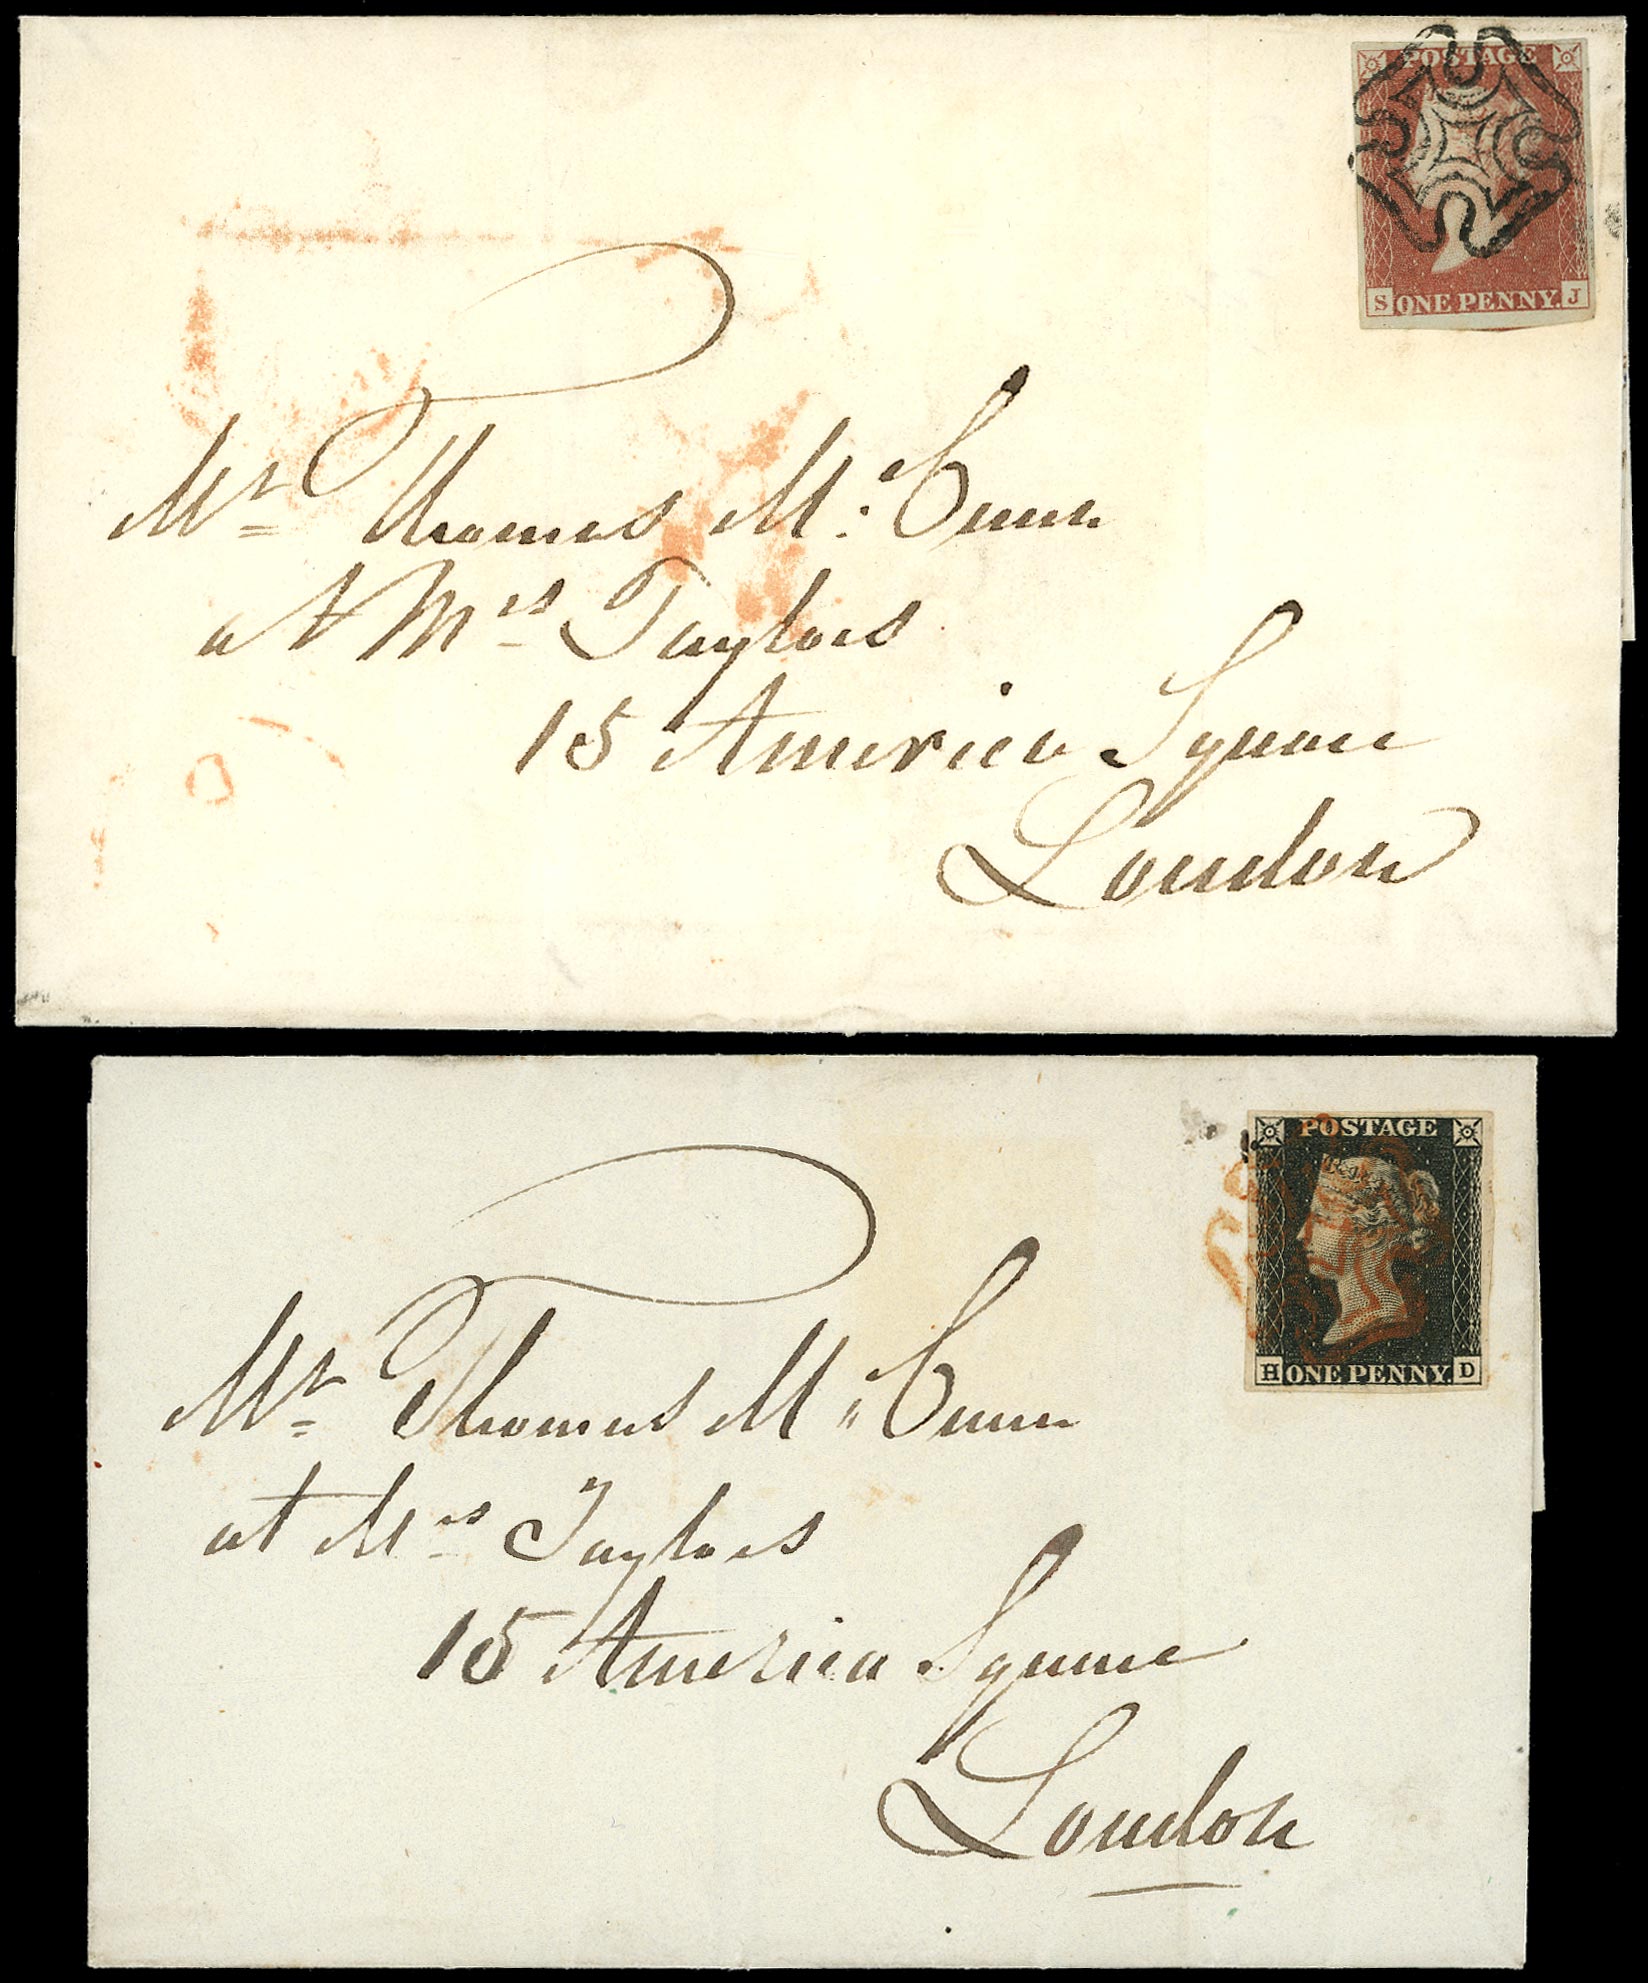 POSTAGE
S ONE PENNY. J
Mr Thomas Mc. Cunn
at Mrs Taylors
15 America Square
London
POSTAGE
H ONE PENNY. D
Mr Thomas Mc" Cunn
at Mrs Taylors
15 America Square
London